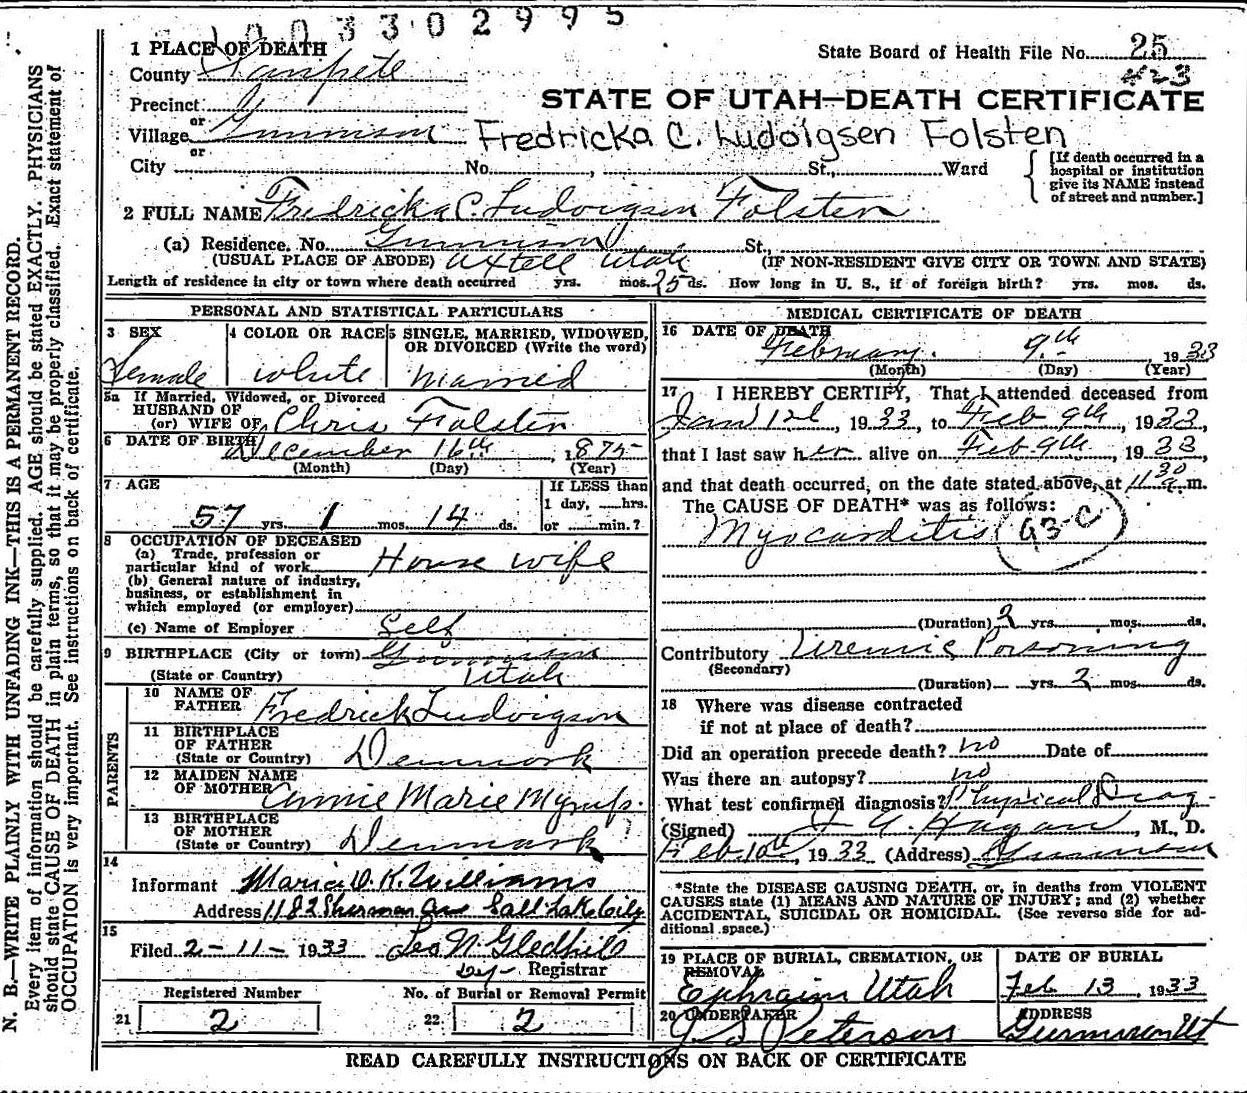 1003302995
1 PLACE OF DEATH
State Board of Health File No. 25
County Sanpete
423
STATE OF UTAH—DEATH CERTIFICATE
Precinct
or
Village Gunnison
Fredricka C. Ludoigsen Folsten
or
City No. , St., Ward
[If death occurred in a hospital or institution give its NAME instead of street and number.]
2 FULL NAME Fredricka C. Ludvigsen Folsten
(a) Residence. No. Gunnison St.,
(USUAL PLACE OF ABODE) Axtell Utah (IF NON-RESIDENT GIVE CITY OR TOWN AND STATE)
Length of residence in city or town where death occurred yrs. mos. 25 ds. How long in U. S., if of foreign birth? yrs. mos. ds.
PERSONAL AND STATISTICAL PARTICULARS
3 SEX
Female
4 COLOR OR RACE
White
5 SINGLE, MARRIED, WIDOWED, OR DIVORCED (Write the word)
Married
5a If Married, Widowed, or Divorced
HUSBAND OF
(or) WIFE OF Chris Folsten
6 DATE OF BIRTH December 16th, 1875
(Month) (Day) (Year)
7 AGE
57 yrs. 1 mos. 14 ds.
If LESS than
1 day, hrs.
or min.?
8 OCCUPATION OF DECEASED
(a) Trade, profession or
particular kind of work House wife
(b) General nature of industry,
business, or establishment in
which employed (or employer)
(c) Name of Employer Self
9 BIRTHPLACE (City or town) Gunnison
(State or Country) Utah
PARENTS
10 NAME OF
FATHER Fredrick Ludvigson
11 BIRTHPLACE
OF FATHER
(State or Country) Denmark
12 MAIDEN NAME
OF MOTHER Annie Marie
13 BIRTHPLACE
OF MOTHER
(State or Country) Denmark
14
Informant Maria D. K. Williams
Address 1182 Sherman Ave Salt Lake City
15
Filed 2-11-1933 Leo N. Gledhill
Dy- Registrar
Registered Number
21 2
No. of Burial or Removal Permit
22 2
MEDICAL CERTIFICATE OF DEATH
16 DATE OF DEATH
February. 9th, 1933
(Month) (Day) (Year)
17 I HEREBY CERTIFY, That I attended deceased from
Jan 12th, 1933, to Feb 9th, 1933,
that I last saw her alive on Feb 9th, 1933,
and that death occurred, on the date stated above, at 11 30 a.m.
The CAUSE OF DEATH* was as follows:
Myocarditis 93-C
(Duration) 2 yrs. mos. ds.
Contributory Uremic Poisoning
(Secondary)
(Duration) yrs. 2 mos. ds.
18 Where was disease contracted
if not at place of death?
Did an operation precede death? no Date of
Was there an autopsy? no
What test confirmed diagnosis? Physical Diag-
(Signed) H. A. Hagan, M., D.
Feb 10th, 1933 (Address) Gunnison
*State the DISEASE CAUSING DEATH, or, in deaths from VIOLENT
CAUSES state (1) MEANS AND NATURE OF INJURY; and (2) whether
ACCIDENTAL, SUICIDAL OR HOMICIDAL. (See reverse side for ad-
ditional space.)
19 PLACE OF BURIAL, CREMATION, OR
REMOVAL
Ephraim Utah
DATE OF BURIAL
Feb 13, 1933
20 UNDERTAKER
J. S. Peterson
ADDRESS
Gunnison Ut
READ CAREFULLY INSTRUCTIONS ON BACK OF CERTIFICATE
N. B.—WRITE PLAINLY WITH UNFADING INK—THIS IS A PERMANENT RECORD.
Every item of information should be carefully supplied. AGE should be stated EXACTLY. PHYSICIANS
should state CAUSE OF DEATH in plain terms, so that it may be properly classified. Exact statement of
OCCUPATION is very important. See instructions on back of certificate.